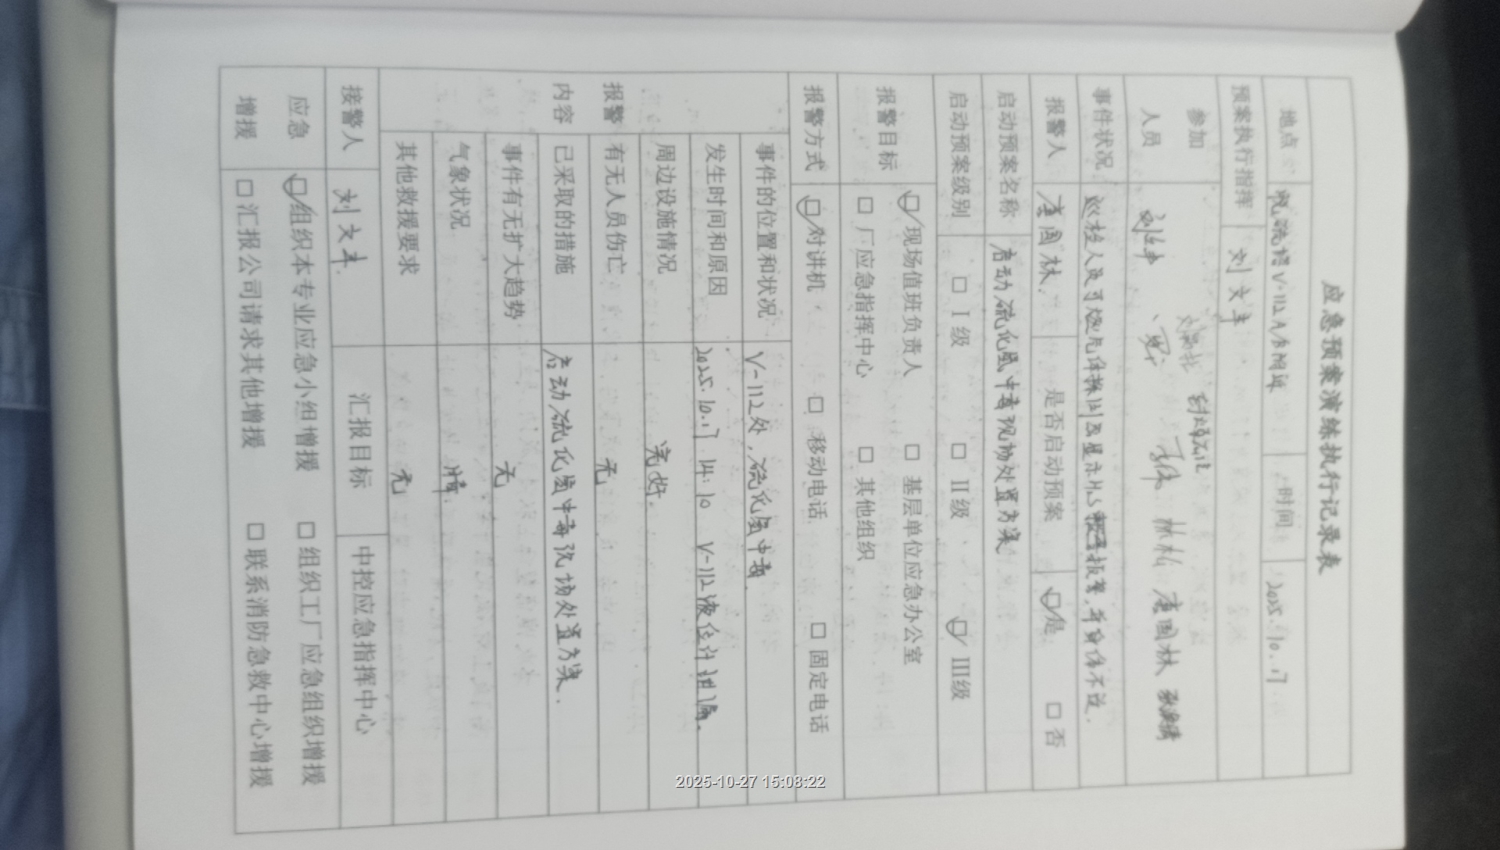 应急预案演练执行记录表
地点 脱硫塔V-112A/B附近 时间 2025.10.17
预案执行指挥 刘文丰
参加
人员 林松 唐国林
事件状况 巡检人员可燃气体探测仪显示H₂S报警,并身体不适.
报警人 唐国林 是否启动预案 ☑是 □否
启动预案名称 启动硫化氢中毒现场处置方案
启动预案级别 □ I级 □ II级 ☑ III级
报警目标 ☑现场值班负责人 □ 基层单位应急办公室
□ 厂应急指挥中心 □ 其他组织
报警方式 ☑对讲机 □ 移动电话 □ 固定电话
报警
内容
事件的位置和状况 V-112处,硫化氢中毒.
发生时间和原因 2025.10.17 14:10 V-112液位计泄漏.
周边设施情况 完好.
有无人员伤亡 无
已采取的措施 启动硫化氢中毒现场处置方案.
事件有无扩大趋势 无
气象状况 晴
其他救援要求 无
接警人 刘文丰 汇报目标 中控应急指挥中心
应急
增援
☑组织本专业应急小组增援 □ 组织工厂应急组织增援
□ 汇报公司请求其他增援 □ 联系消防急救中心增援
2025-10-27 15:08:22